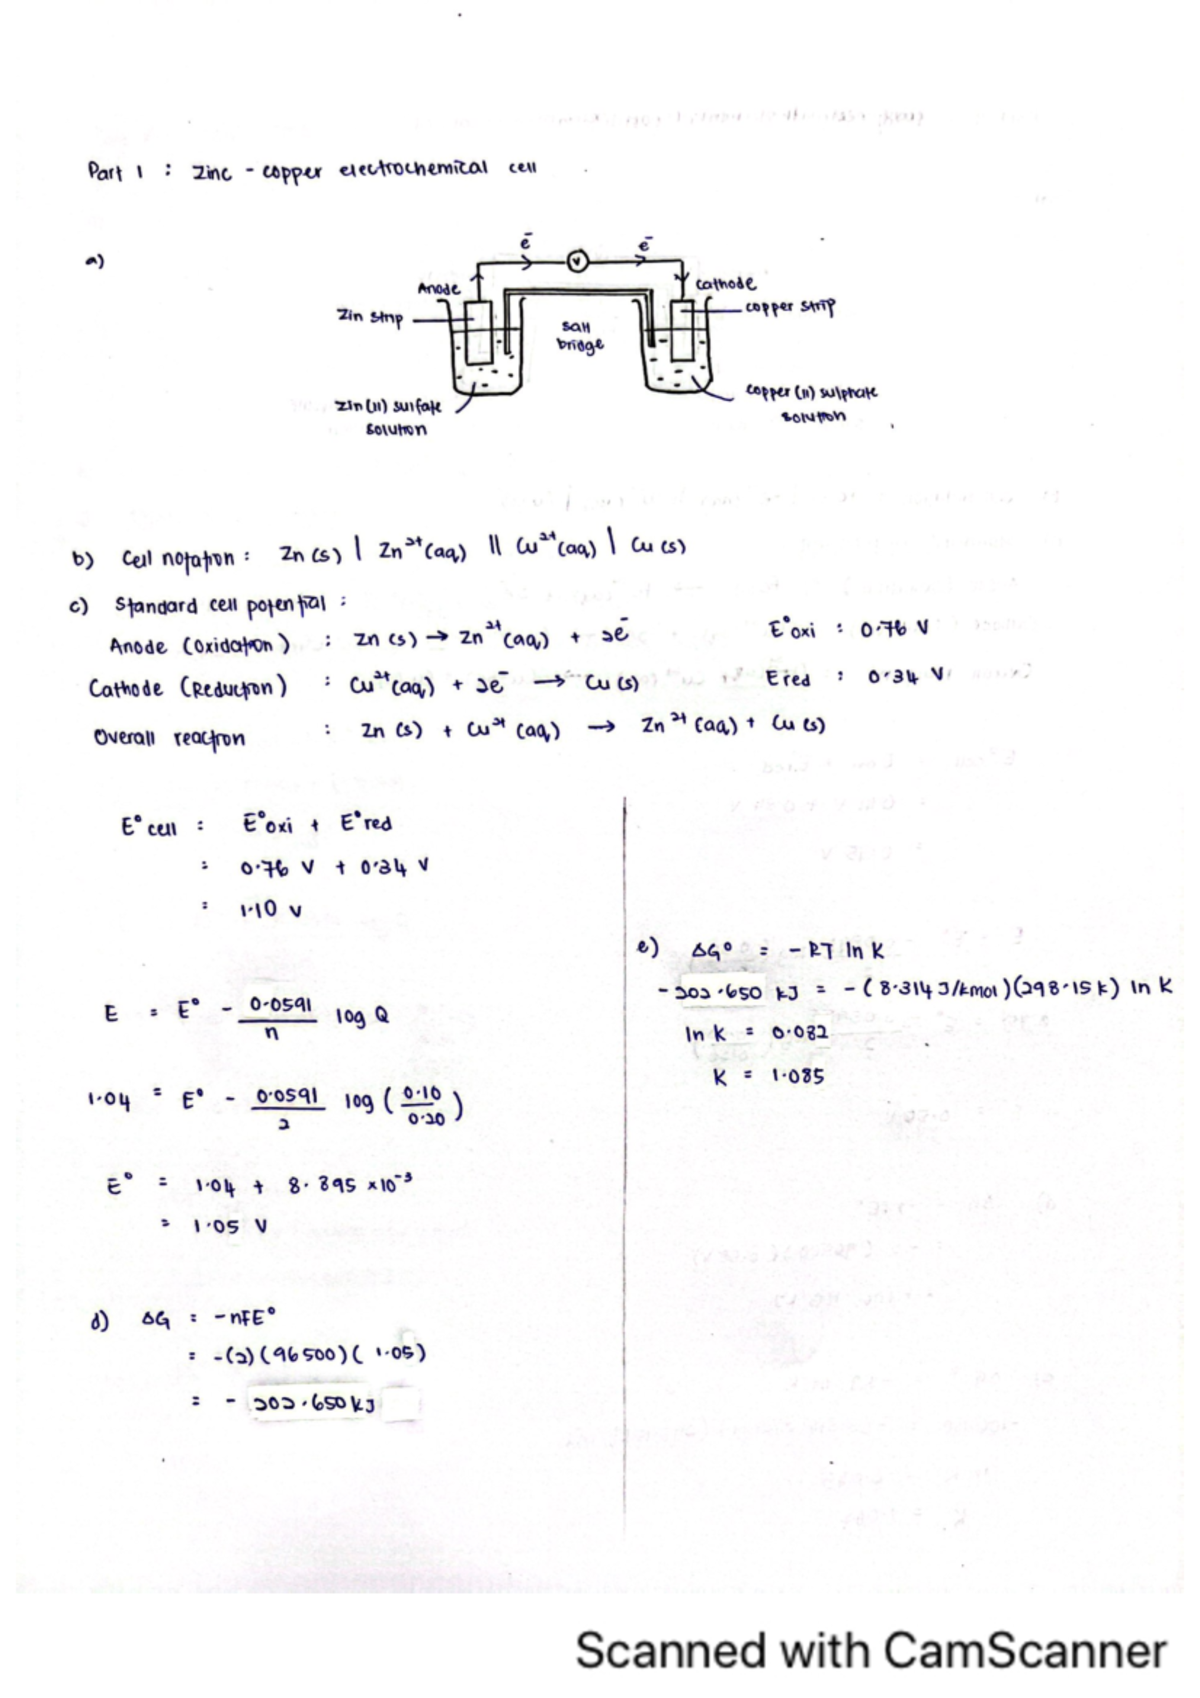 Part 1 : Zinc - copper electrochemical cell
a)
e⁻ e⁻
V
Anode
cathode
Zin strip
copper strip
salt
bridge
Zin (II) sulfate
solution
copper (II) sulphate
solution
b) Cell notation : Zn (s) | Zn²⁺ (aq) || Cu²⁺ (aq) | Cu (s)
c) Standard cell potential :
Anode (Oxidation) : Zn (s) → Zn²⁺ (aq) + 2e⁻ E°oxi : 0.76 V
Cathode (Reduction) : Cu²⁺ (aq) + 2e⁻ → Cu (s) E red : 0.34 V
Overall reaction : Zn (s) + Cu²⁺ (aq) → Zn²⁺ (aq) + Cu (s)
E° cell : E°oxi + E°red
: 0.76 V + 0.34 V
: 1.10 V
E = E° - 0.0591/n log Q
1.04 = E° - 0.0591/2 log (0.10/0.20)
E° = 1.04 + 8.895 × 10⁻³
= 1.05 V
d) ΔG = -nFE°
= -(2)(96500)(1.05)
= - 202.650 kJ
e) ΔG° = - RT ln K
- 202.650 kJ = - (8.314 J/kmol)(298.15 K) ln K
ln K = 0.082
K = 1.085
Scanned with CamScanner